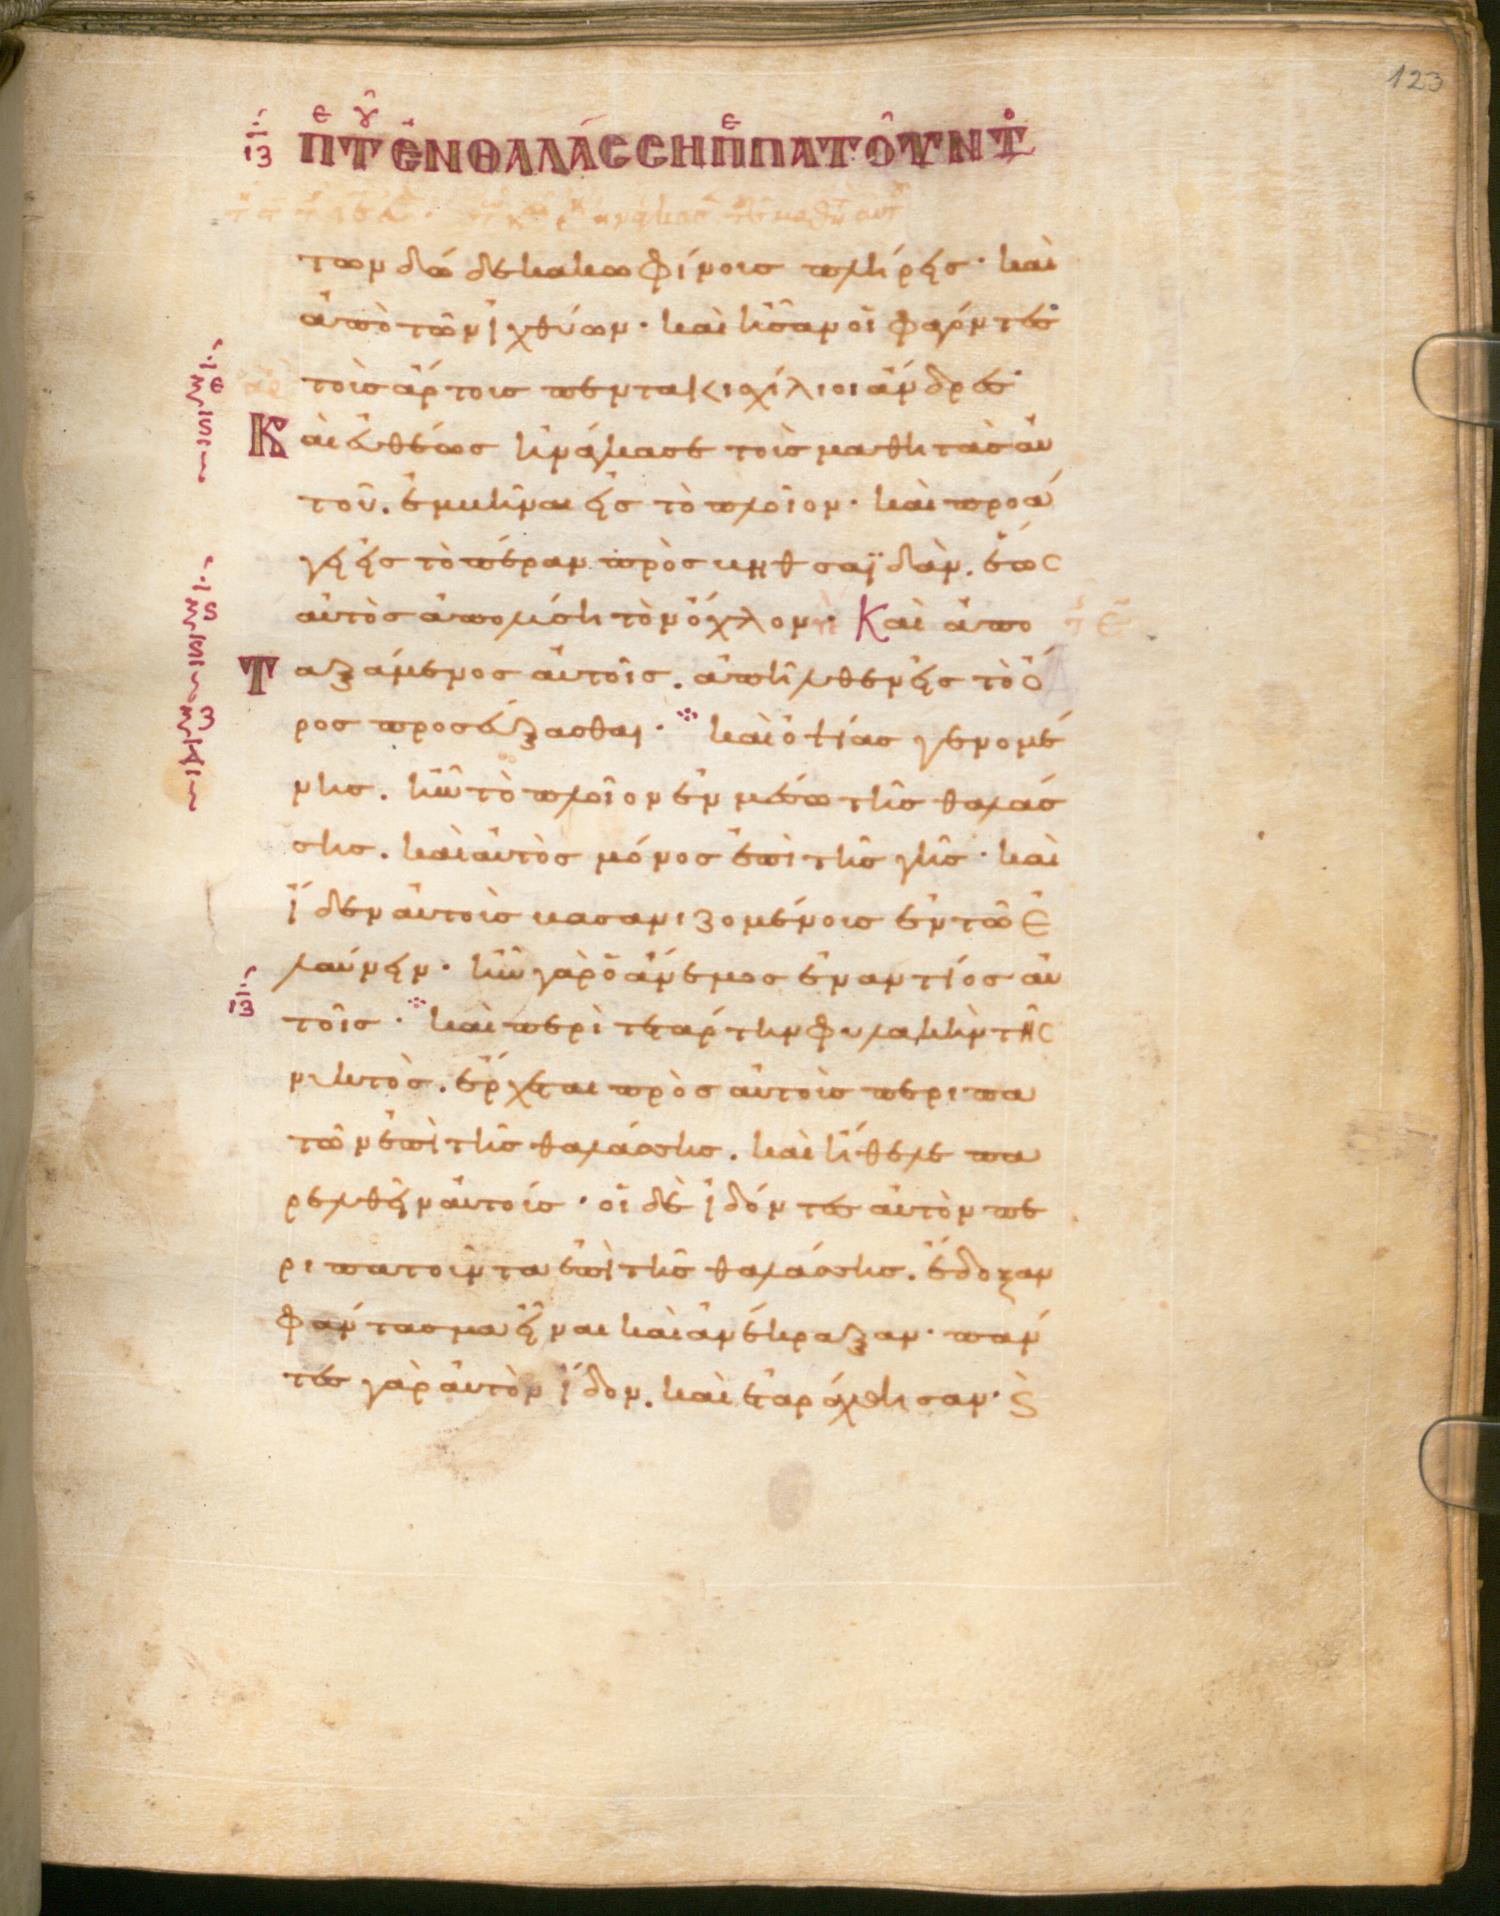 123
ιζ Π̅ε̅ Τ̅ο̅ῦ̅ ἘΝ ΘΑΛΆССΗ ΠΕΠΑΤΟῦΝΤο
των δώδεκα κωφίνους πλήρεις· καὶ
ἀπὸ τῶν ἰχθύων· καὶ ἦσαν οἱ φαγόντες
ξε τοὺς ἄρτους πεντακισχίλιοι ἄνδρες·
ς Καὶ εὐθέως ἠνάγκασε τοὺς μαθητὰς αὐ
τοῦ. ἐμβῆναι εἰς τὸ πλοῖον· καὶ προά
γειν εἰς τὸ πέραν πρὸς βηθσαϊδὰν. ἕως
ξς αὐτὸς ἀπολύσῃ τὸν ὄχλον· Καὶ ἀπο
Ταξάμενος αὐτοῖς. ἀπῆλθεν εἰς τὸ ὄ
ξζ ρος προσεύξασθαι· καὶ ὀψίας γενομέ
νης. ἦν τὸ πλοῖον ἐν μέσω τῆς θαλάσ
σης. καὶ αὐτὸς μόνος ἐπὶ τῆς γῆς· καὶ
ἴδεν αὐτοὺς βασανιζομένους ἐν τῶ ἐ
λαύνειν· ἦν γὰρ ὁ ἄνεμος ἐναντίος αὐ
ιζ τοῖς· καὶ περὶ τετάρτην φυλακὴν τῆς
νυκτὸς. ἔρχεται πρὸς αὐτοὺς περιπα
τῶν ἐπὶ τῆς θαλάσσης. καὶ ἤθελε πα
ρελθεῖν αὐτούς· οἱ δὲ ἰδόντες αὐτὸν πε
ριπατοῦντα ἐπὶ τῆς θαλάσσης. ἔδοξαν
φάντασμα εἶναι καὶ ἀνέκραξαν· πάν
τες γὰρ αὐτὸν ἴδον. καὶ ἐταράχθησαν· ϛ